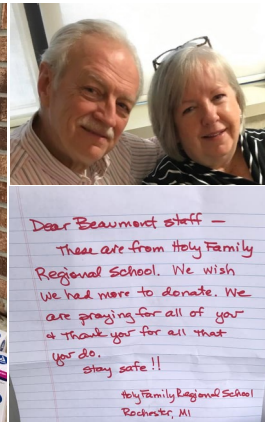 Dear Beaumont staff —
These are from Holy Family
Regional School. We wish
we had more to donate. We
are praying for all of you
& Thank you for all that
you do.
Stay safe !!
Holy Family Regional School
Rochester, MI